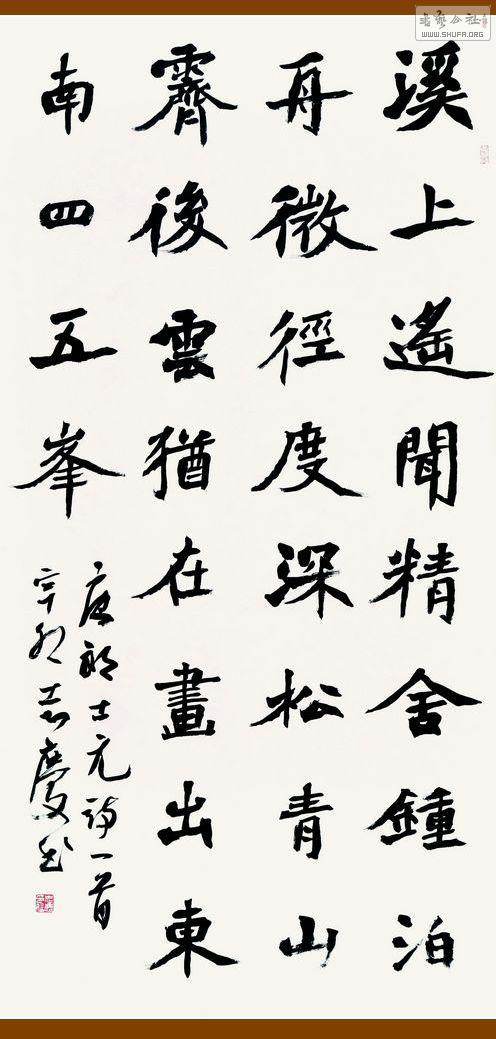 溪上遙聞精舍鍾泊
舟微徑度深松青山
霽後雲猶在畫出東
南四五峯
唐郎士元詩一首
辛卯志慶書
WWW.SHUFA.ORG